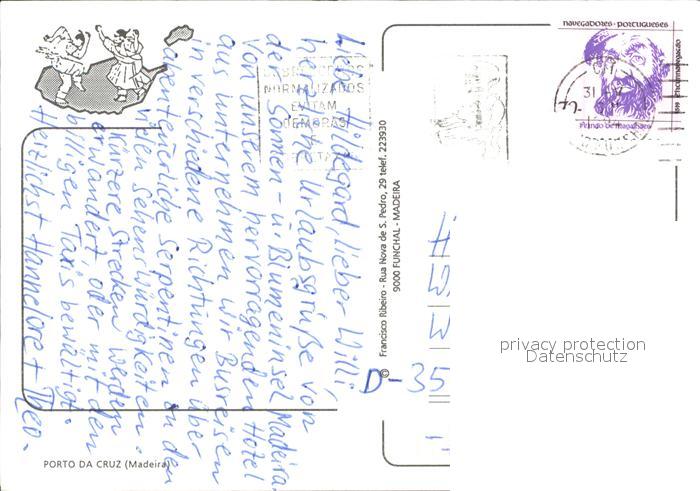 Liebe Hildegard, lieber Willi
herzliche Urlaubsgrüße von
der Sonnen- u. Blumeninsel Madeira.
Von unserem hervorragenden Hotel
aus unternehmen wir Busreisen
in verschiedene Richtungen über
abenteuerliche Serpentinen zu den
vielen Sehenswürdigkeiten.
Kürzere Strecken werden
erwandert oder mit den
billigen Taxis bewältigt.
Herzlichst Hannelore + Theo.
PORTO DA CRUZ (Madeira)
© Francisco Ribeiro - Rua Nova de S. Pedro, 29 telef. 223930
9000 FUNCHAL - MADEIRA
NORMALIZADOS
EVITAM
DEMORAS
navegadores · portugueses
D-35
privacy protection
Datenschutz